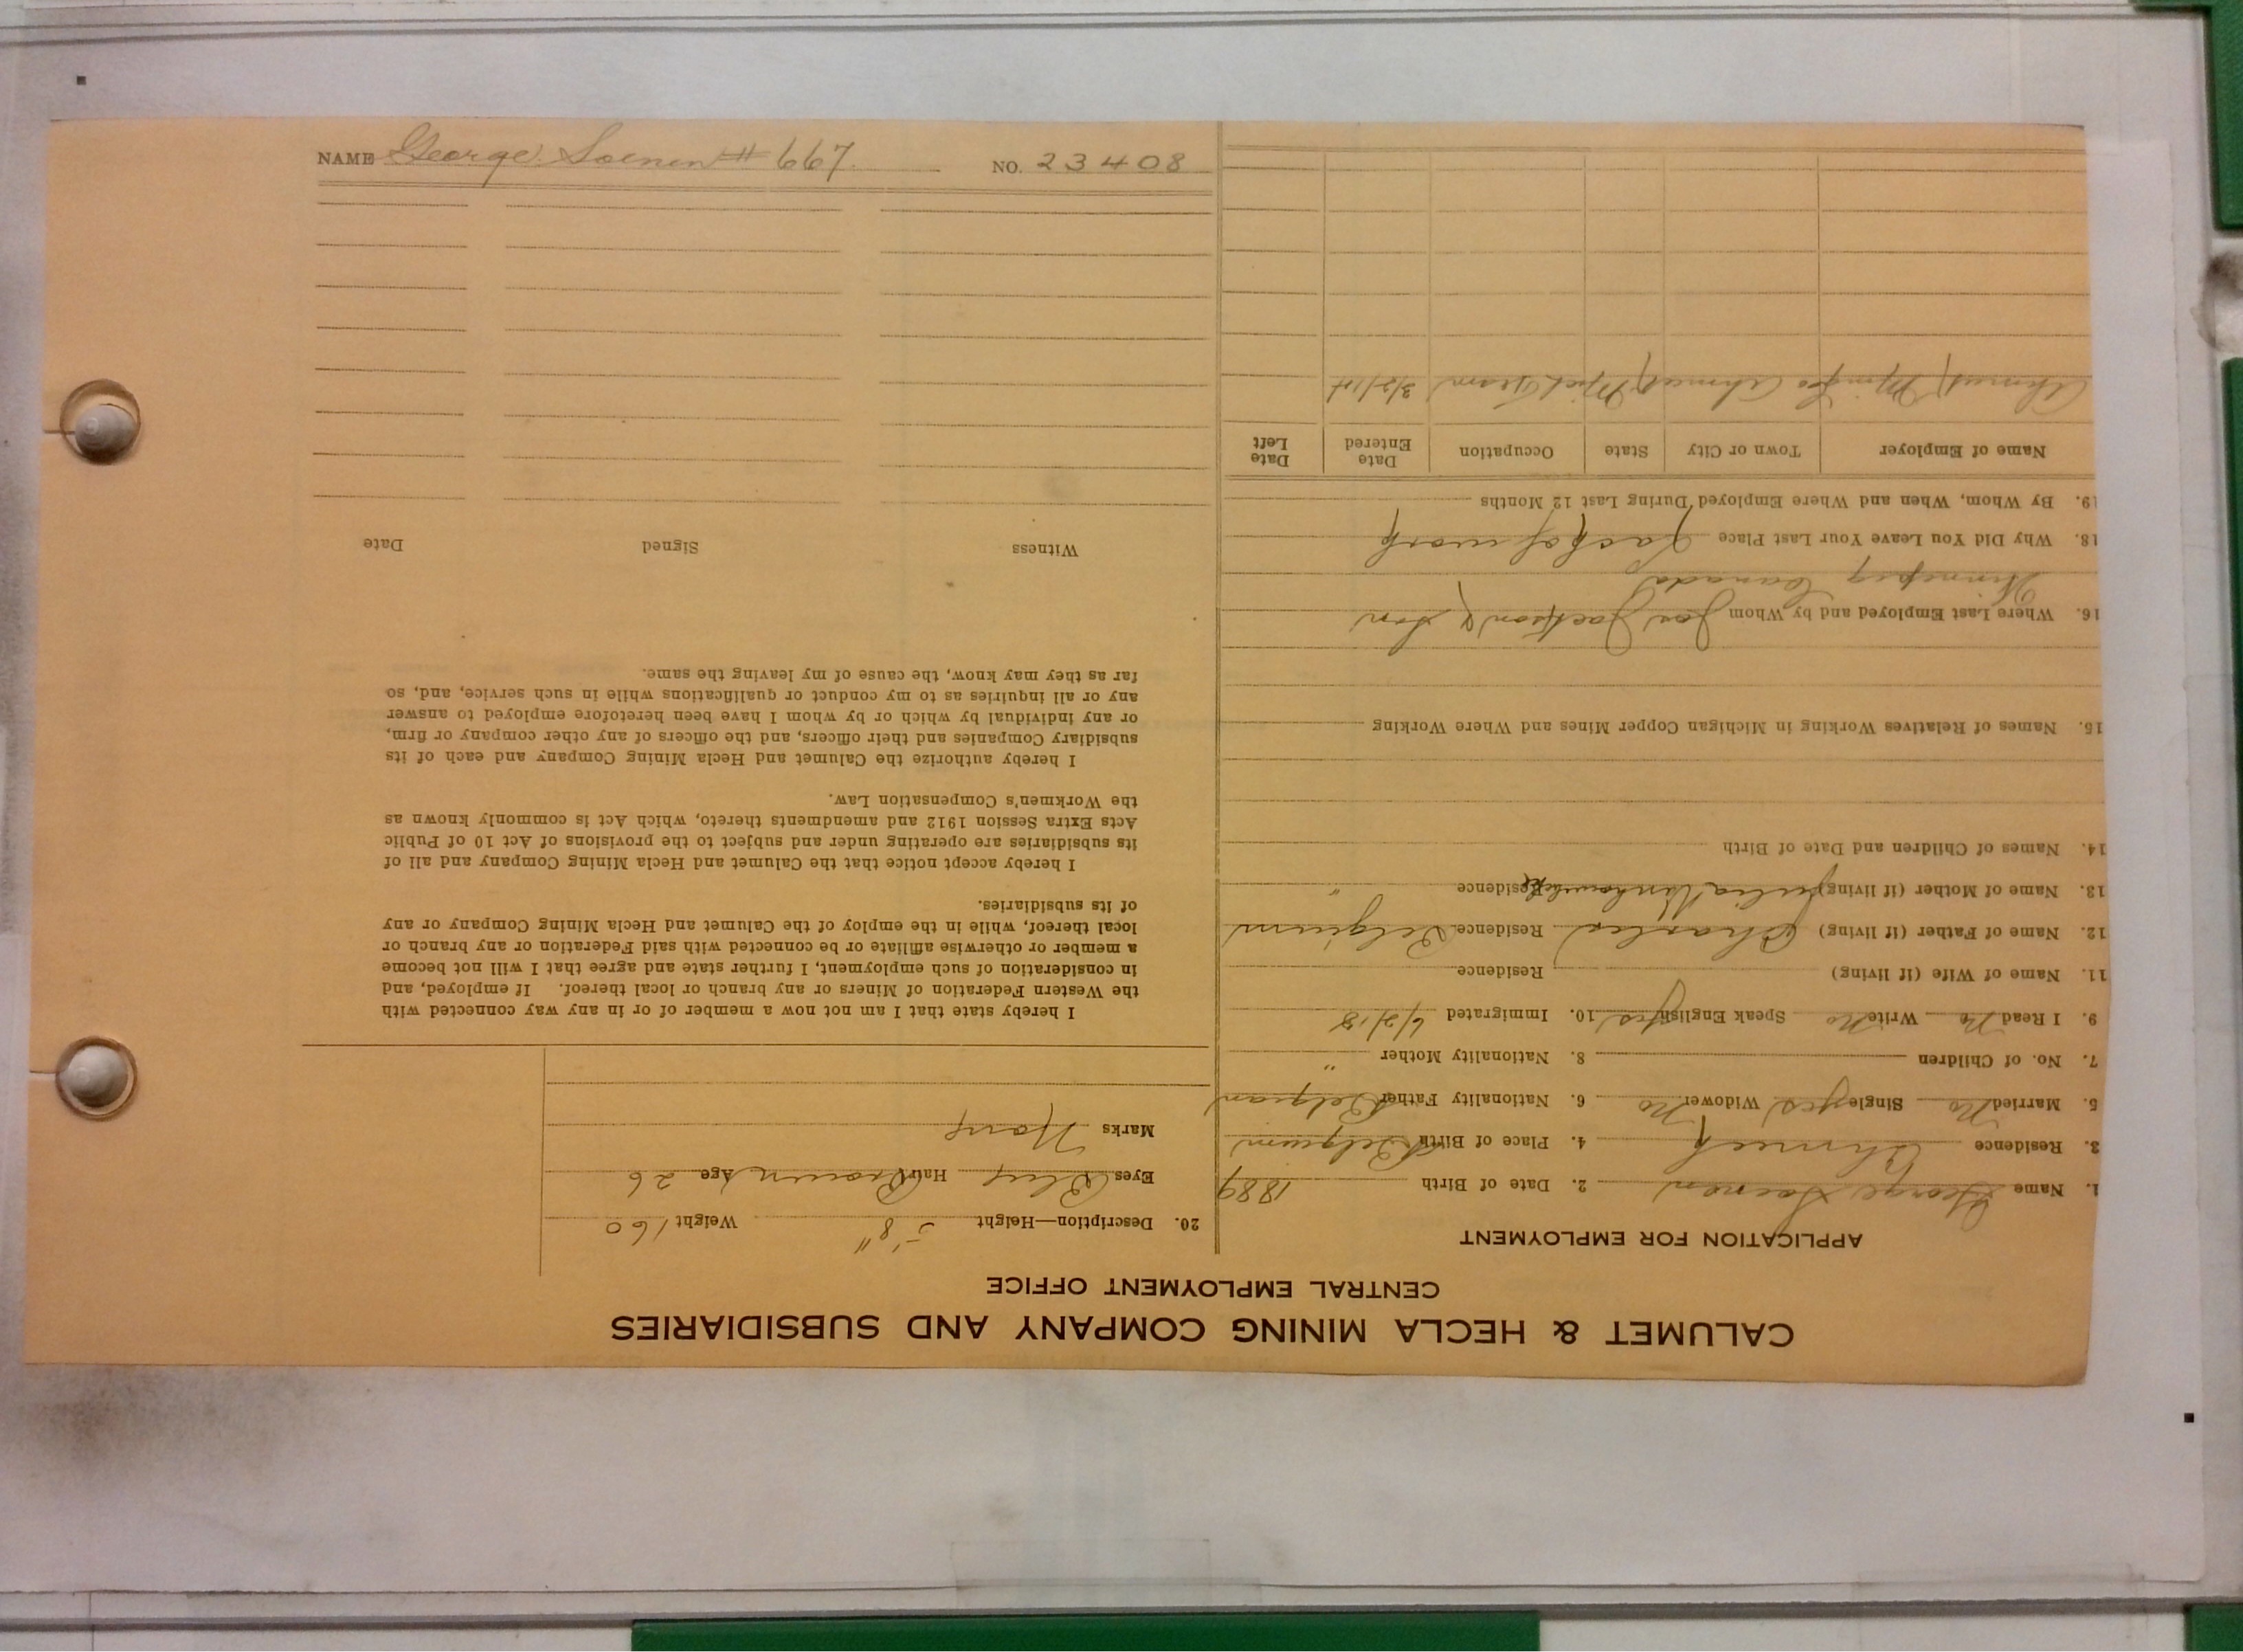 CALUMET & HECLA MINING COMPANY AND SUBSIDIARIES
CENTRAL EMPLOYMENT OFFICE
APPLICATION FOR EMPLOYMENT
1. Name George Soenen 2. Date of Birth 1889
3. Residence Ahmeek 4. Place of Birth Belgium
5. Married No Single yes Widower No 6. Nationality Father Belgian
7. No. of Children 8. Nationality Mother "
9. I Read No Write No Speak English yes 10. Immigrated
11. Name of Wife (if living) Residence
12. Name of Father (if living) Charles Residence Belgium
13. Name of Mother (if living) Julia Residence "
14. Names of Children and Date of Birth
15. Names of Relatives Working in Michigan Copper Mines and Where Working
16. Where Last Employed and by Whom Jos Jackson & Son
Winnipeg Canada
18. Why Did You Leave Your Last Place Lack of work
19. By Whom, When and Where Employed During Last 12 Months
Name of Employer Town or City State Occupation Date Entered Date Left
Ahmeek Mining Co Ahmeek Mich Tram
20. Description—Height 5' 8" Weight 160
Eyes Blue Hair Brown Age 26
Marks None
I hereby state that I am not now a member of or in any way connected with
the Western Federation of Miners or any branch or local thereof. If employed, and
in consideration of such employment, I further state and agree that I will not become
a member or otherwise affiliate or be connected with said Federation or any branch or
local thereof, while in the employ of the Calumet and Hecla Mining Company or any
of its subsidiaries.
I hereby accept notice that the Calumet and Hecla Mining Company and all of
its subsidiaries are operating under and subject to the provisions of Act 10 of Public
Acts Extra Session 1912 and amendments thereto, which Act is commonly known as
the Workmen's Compensation Law.
I hereby authorize the Calumet and Hecla Mining Company and each of its
subsidiary Companies and their officers, and the officers of any other company or firm,
or any individual by which or by whom I have been heretofore employed to answer
any or all inquiries as to my conduct or qualifications while in such service, and, so
far as they may know, the cause of my leaving the same.
Witness Signed Date
NAME George Soenen # 667 NO. 23408